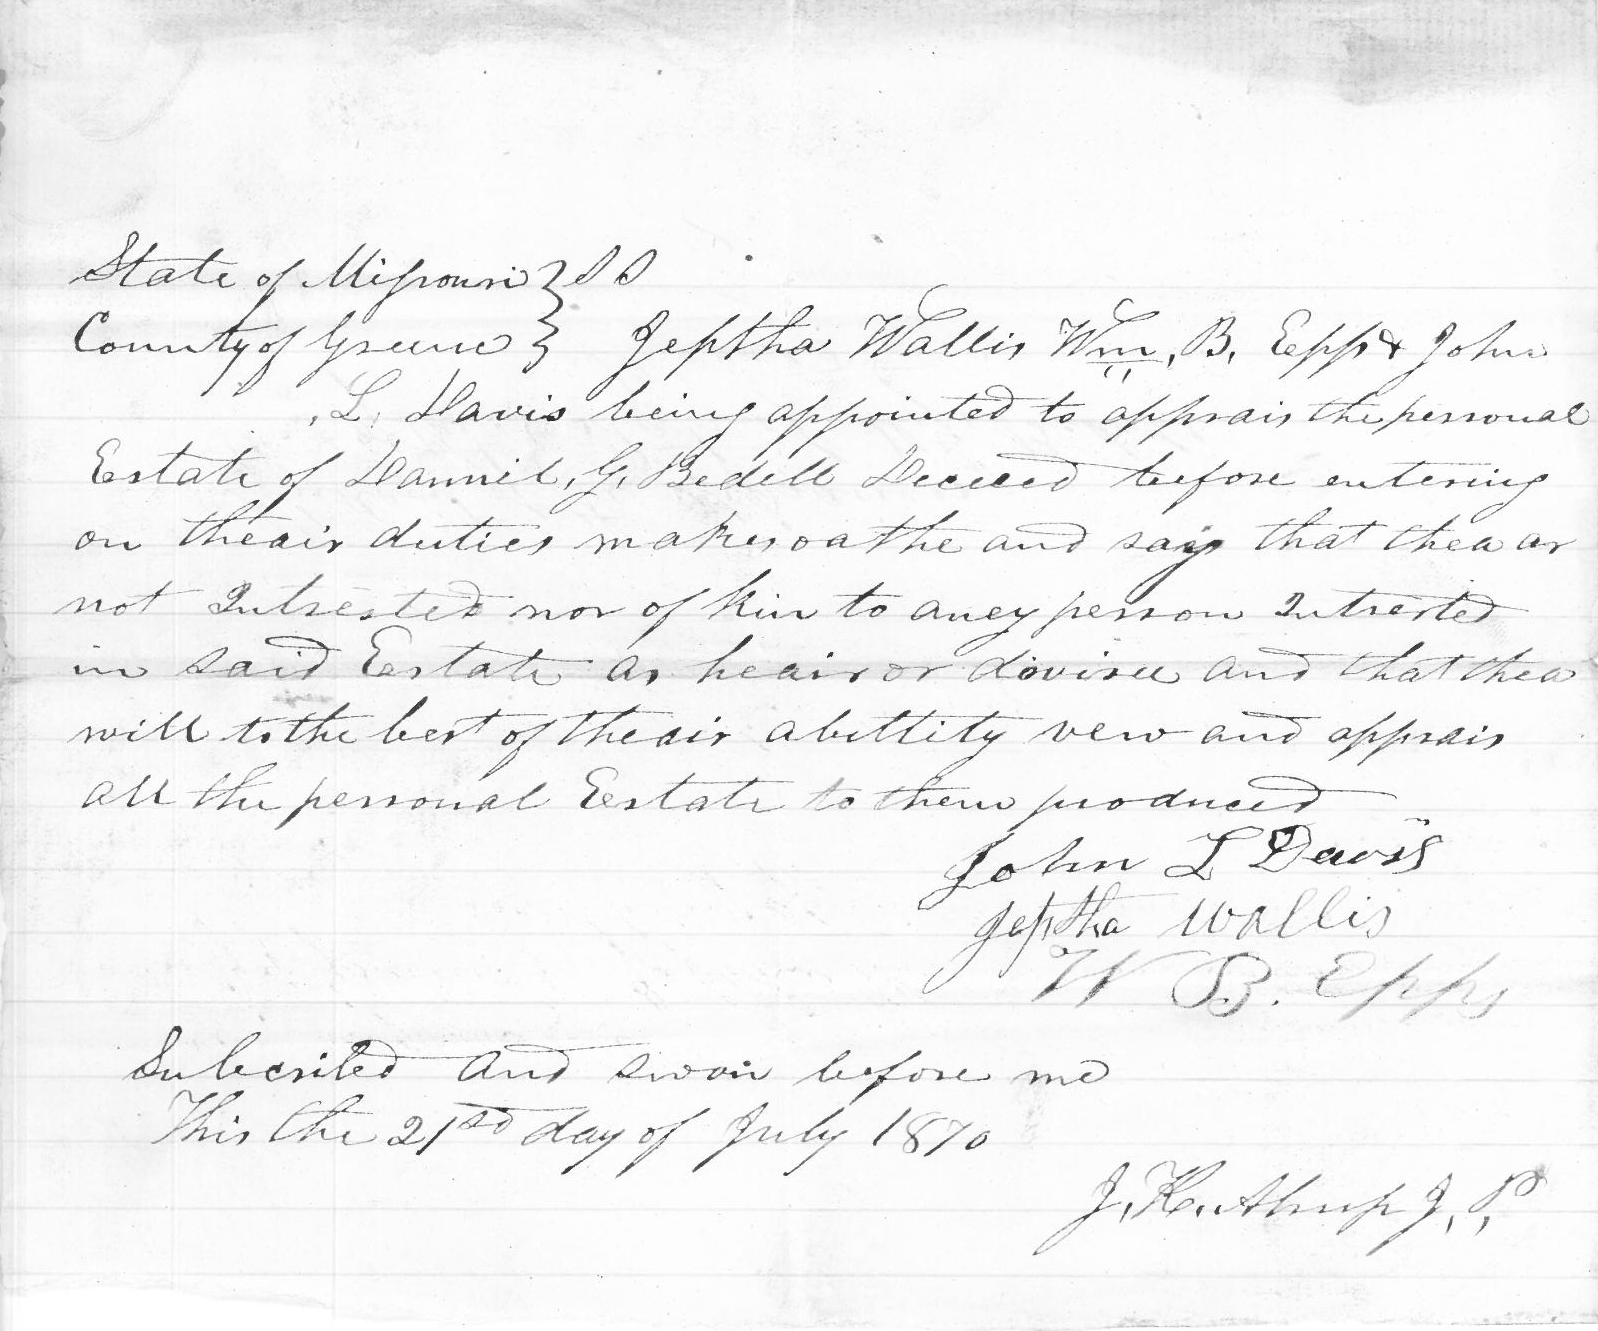 State of Missouri } SS
County of Greene } Jeptha Wallis Wm. B. Eepps & John
. L. Davis being appointed to apprais the personal
Eestate of Dannil. G. Bedell Deceeed before entering
on theair duties makes oathe and says that thea ar
not Intrested nor of kin to aney person Intrested
in said Eestate as heair or divisee and that thea
will to the best of theair abillity vew and apprais
all the personal Eestate to them produced
John L Davis
Jeptha Wallis
W B. Epps
Subcribed and swoin before me
This the 21st day of July 1870
J. K. J. P